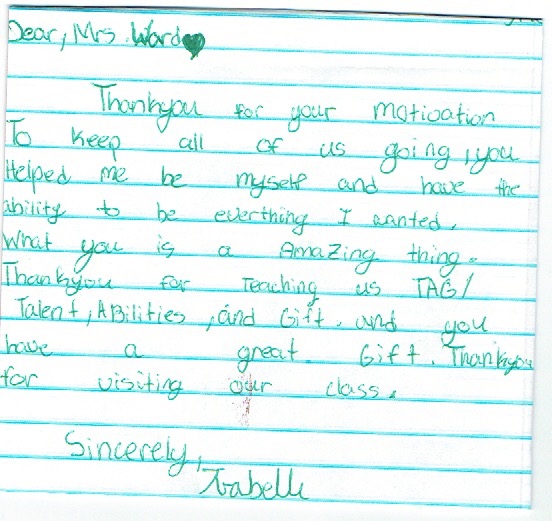 Dear, Mrs. Ward
Thankyou for your motivation
To keep all of us going, you
Helped me be myself and have the
ability to be everthing I wanted.
What you is a Amazing thing.
Thankyou for Teaching us TAG/
Talent, Abilities, and Gift. and you
have a great. Gift. Thankyou
for visiting our class.
Sincerely,
Isabelle